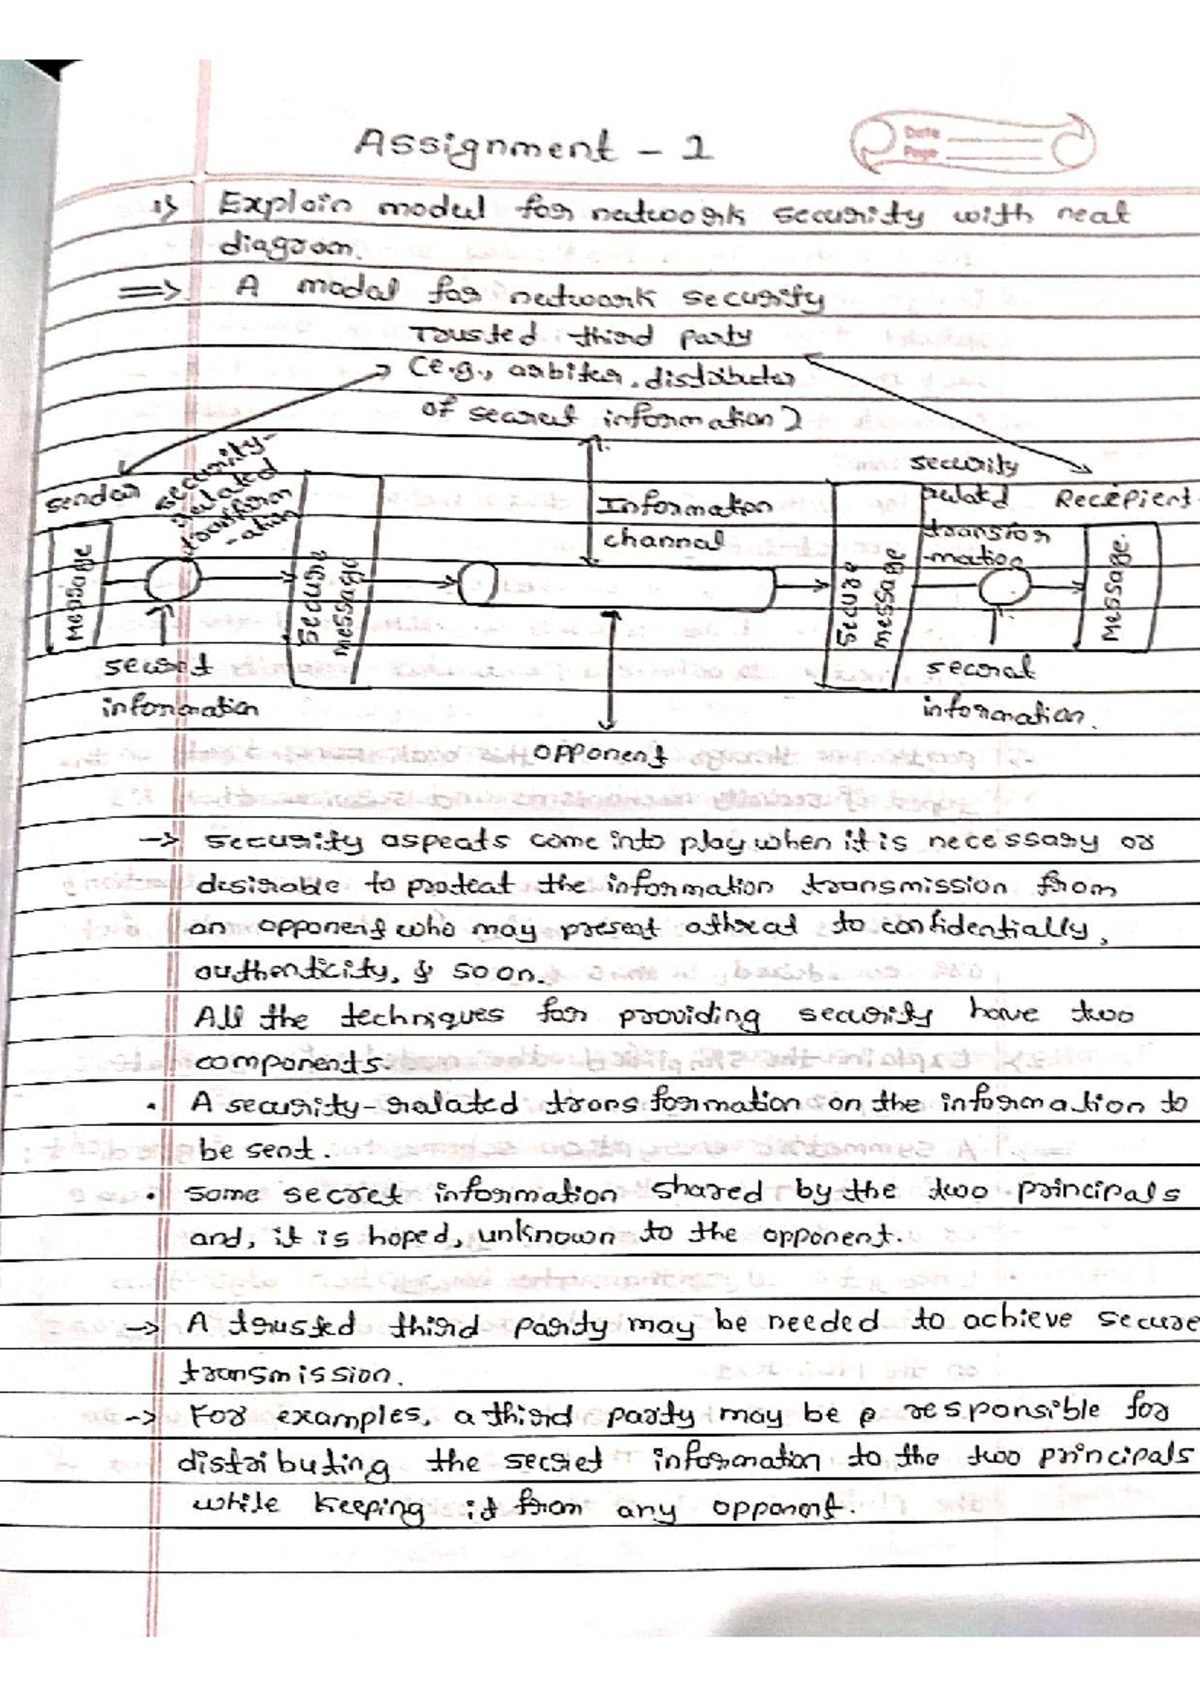 Assignment - 1
Date
Page
1) Explain model for network security with neat
diagram.
=> A model for network security
Trusted third party
(e.g., arbiter, distributer
of secreut information)
security
sender
security-
related
transform
-ation
Information
channal
relatd
transfor
-mation
Recipient
Message
secure
message
secure
message
Message.
secret
information
secrat
information.
opponent
-> security aspects come into play when it is necessary or
desirable to proteat the information transmission from
an opponent who may present athreat to confidentially,
authenticity, & so on.
All the techniques for providing security have two
components.
• A security-related transformation on the information to
be sent.
• some secret information shared by the two principals
and, it is hoped, unknown to the opponent.
-> A trusted third party may be needed to achieve secure
transmission.
-> For examples, a third party may be p responsible for
distributing the secret information to the two principals
while keeping it from any opponent.